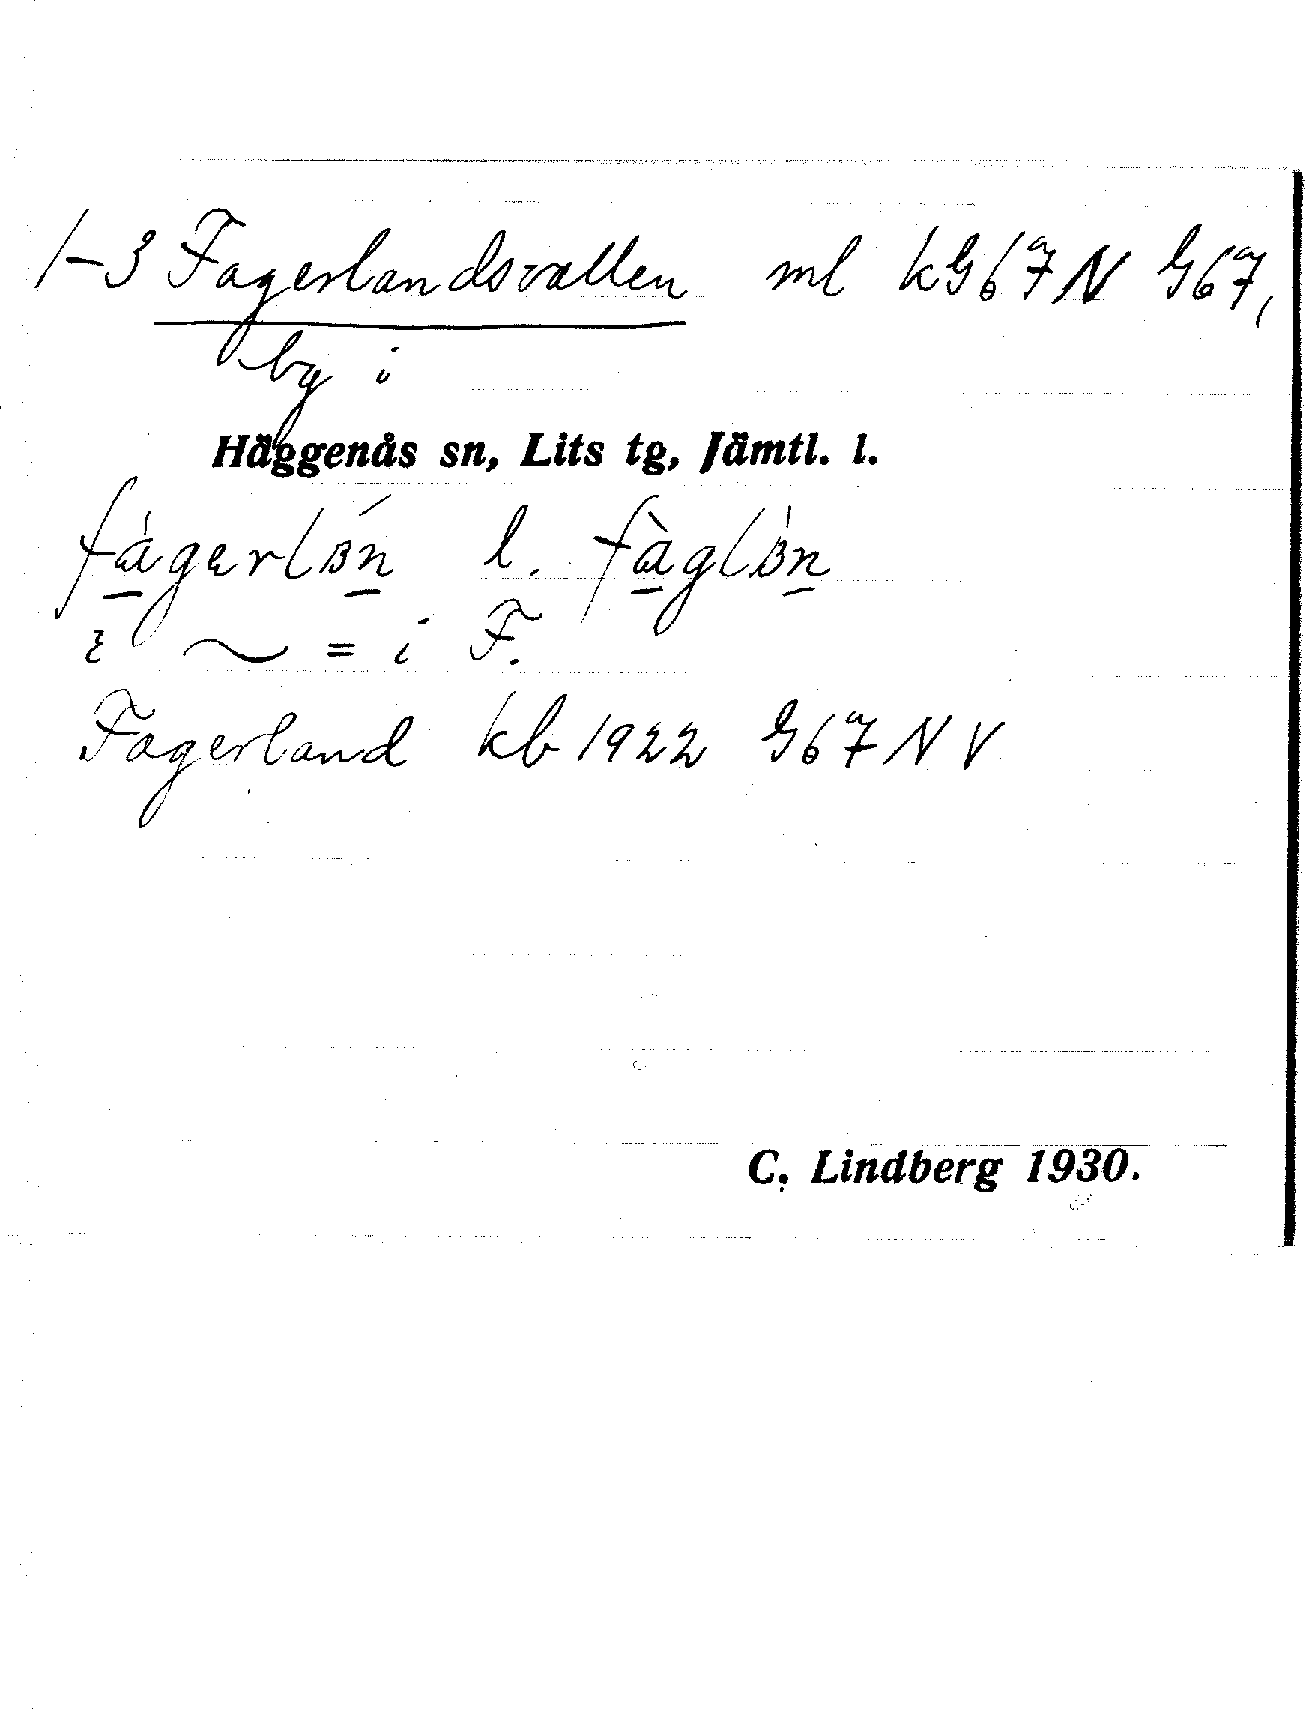 1-3 Fagerlandsvallen ml kG67N G67,
by i
Häggenås sn, Lits tg, Jämtl. l.
l.
= i F.
Fagerland kb 1922 G67NV
C. Lindberg 1930.